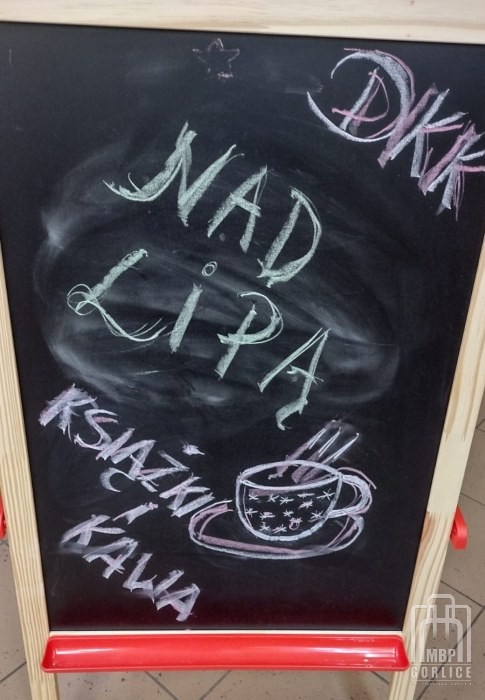 DKK
NAD
LiPĄ
KSIĄŻKI
i
KAWA
MBP
GORLICE